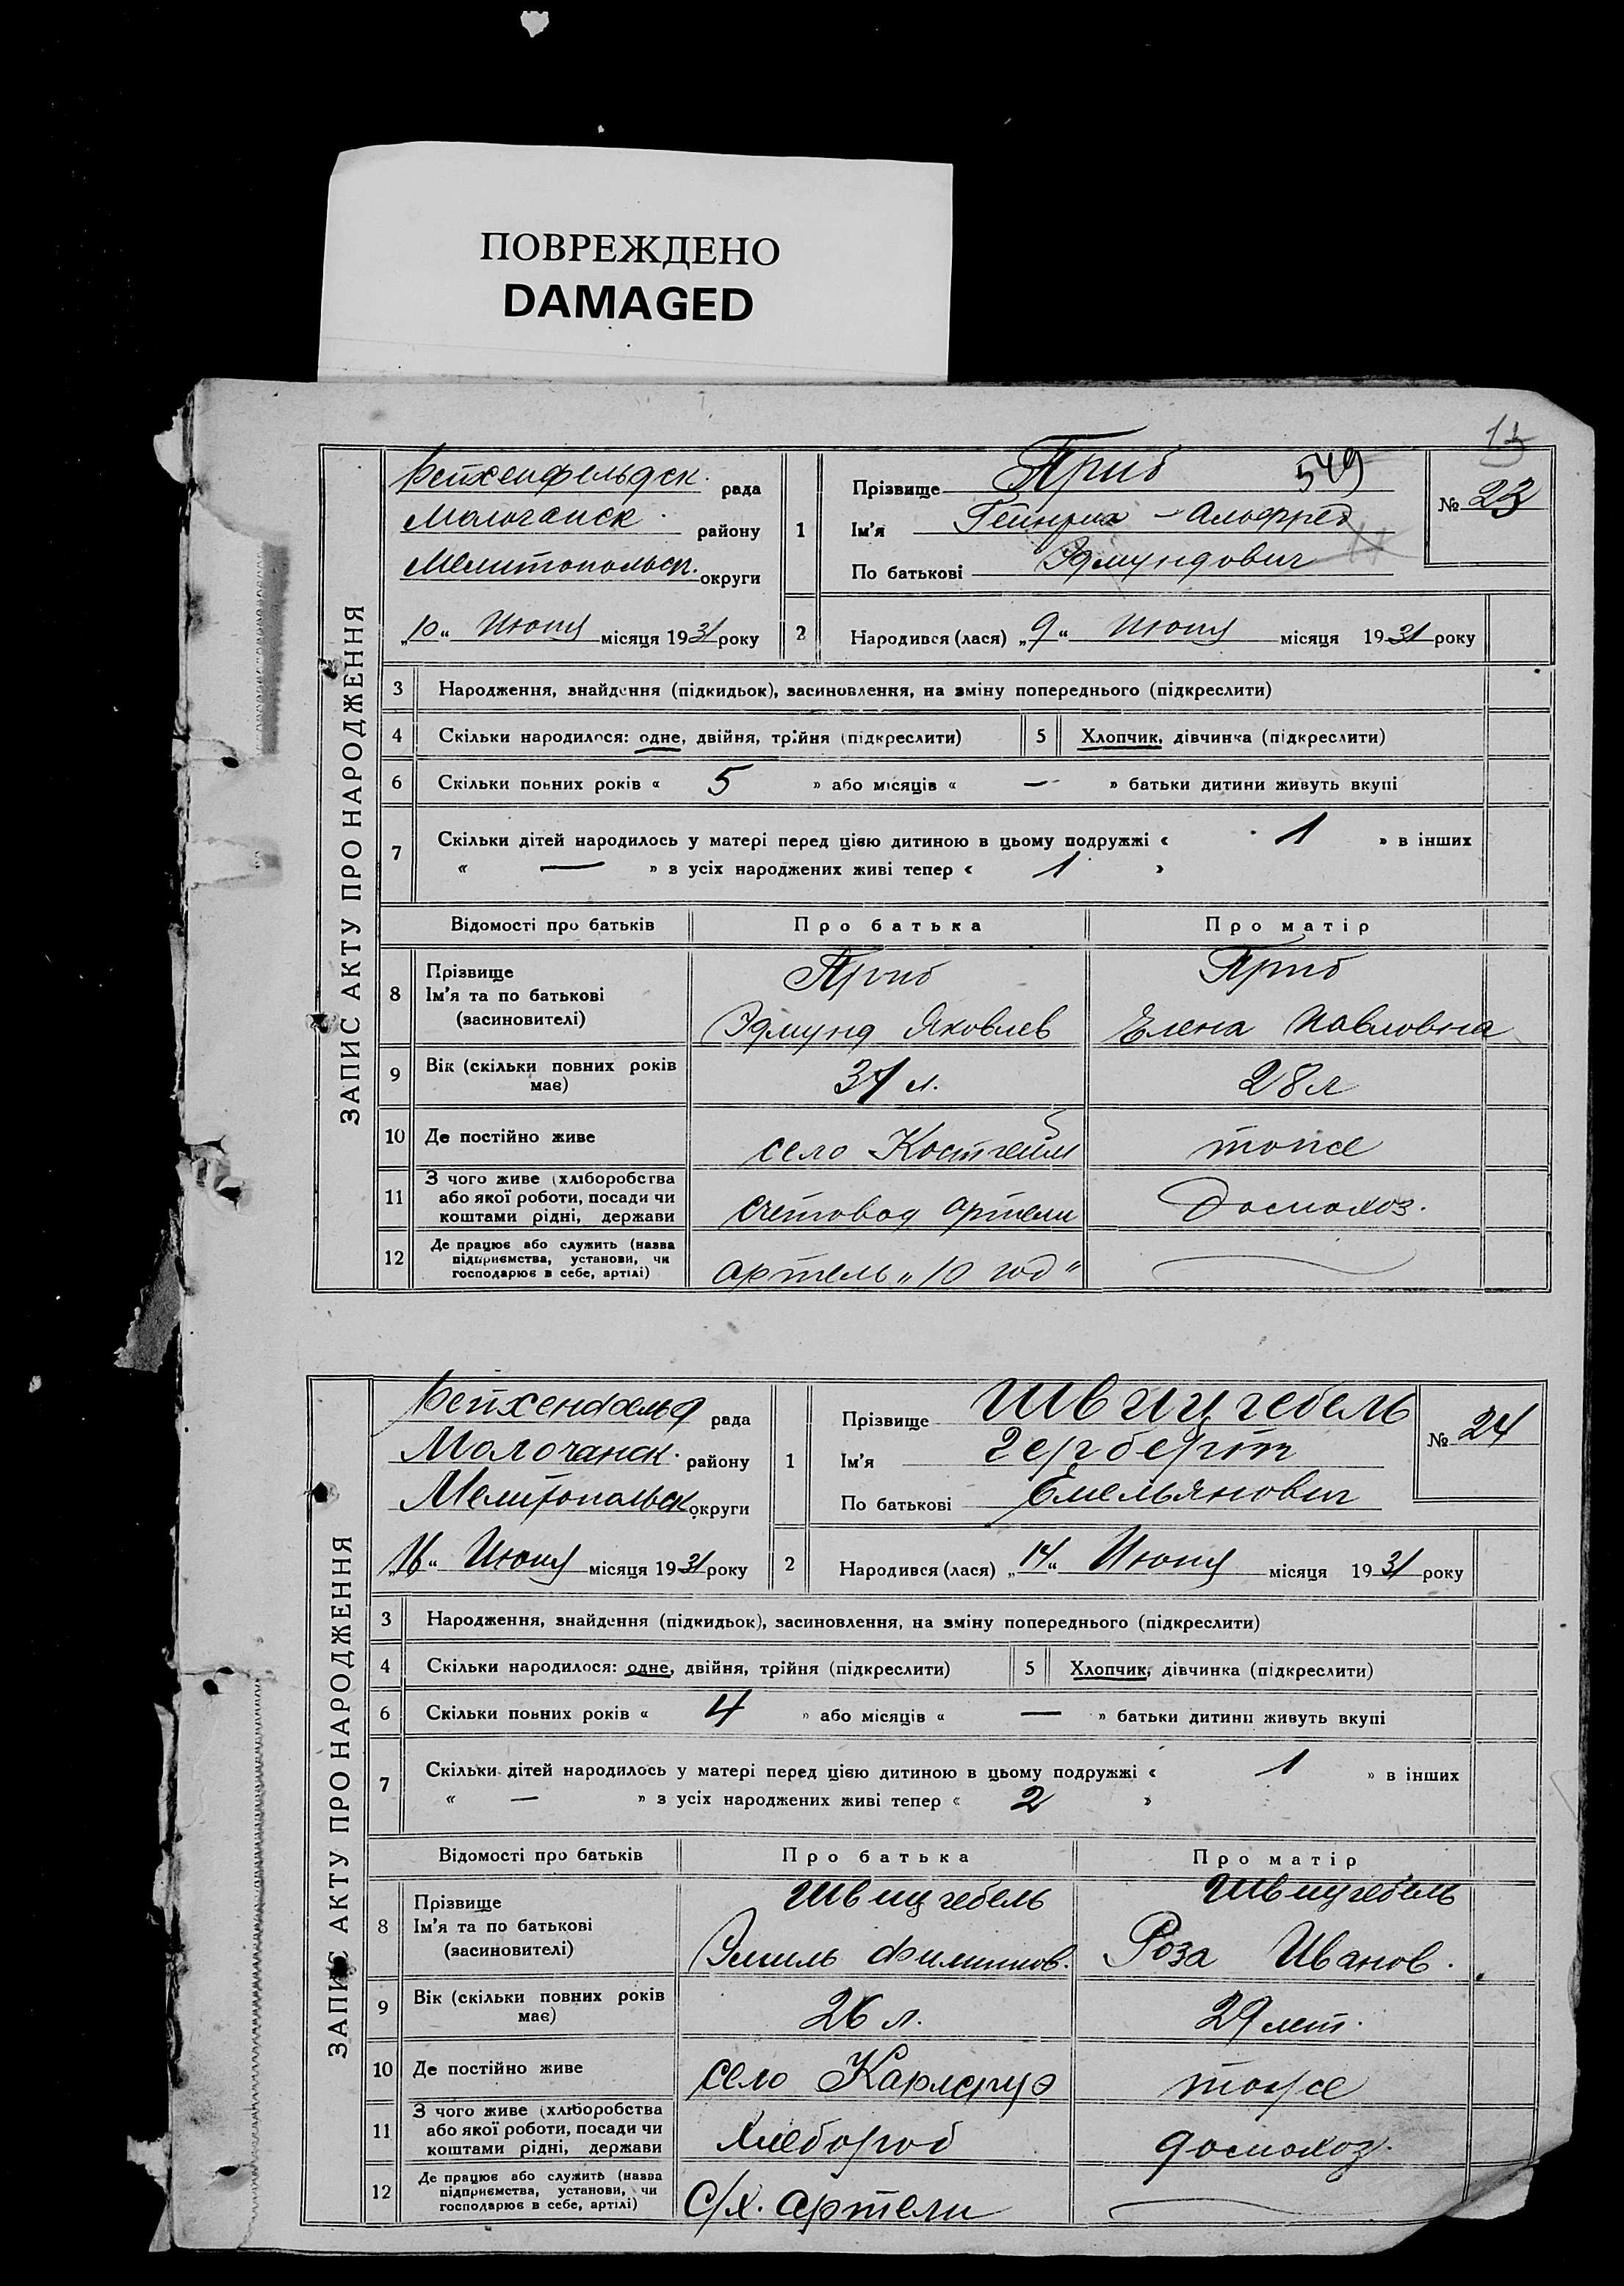 ПОВРЕЖДЕНО
DAMAGED
13
ЗАПИС АКТУ ПРО НАРОДЖЕННЯ
Вейхенфельдск. рада
Молочанск. району
Мелитопольск. округи
„10“ Июня місяця 1931 року
1
Прізвище Приб 549
Ім'я Гейнрих - Альфред
По батькові Эдмундович
№ 23
2
Народився (лася) „9“ Июня місяця 1931 року
3 Народження, знайдення (підкидьок), засиновлення, на зміну попереднього (підкреслити)
4 Скільки народилося: одне, двійня, трійня (підкреслити) 5 Хлопчик, дівчинка (підкреслити)
6 Скільки повних років « 5 » або місяців « — » батьки дитини живуть вкупі
7 Скільки дітей народилось у матері перед цією дитиною в цьому подружжі « 1 » в інших
« — » з усіх народжених живі тепер « 1 »
Відомості про батьків Про батька Про матір
8 Прізвище Приб Приб
Ім'я та по батькові
(засиновителі) Эдмунд Яковлев Елена Павловна
9 Вік (скільки повних років має) л. 28 л
10 Де постійно живе село Костгейм тоже
11 З чого живе (хліборобства
або якої роботи, посади чи
коштами рідні, держави счетовод артели домохоз.
12 Де працює або служить (назва
підприємства, установи, чи
господарює в себе, артілі) артель „10 год“
ЗАПИС АКТУ ПРО НАРОДЖЕННЯ
Вейхенфельд рада
Молочанск. району
Мелитопольск округи
„16“ Июня місяця 1931 року
1
Прізвище Швицгебель
Ім'я Герберт
По батькові Емельянович
№ 24
2
Народився (лася) „14“ Июня місяця 1931 року
3 Народження, знайдення (підкидьок), засиновлення, на зміну попереднього (підкреслити)
4 Скільки народилося: одне, двійня, трійня (підкреслити) 5 Хлопчик, дівчинка (підкреслити)
6 Скільки повних років « 4 » або місяців « — » батьки дитини живуть вкупі
7 Скільки дітей народилось у матері перед цією дитиною в цьому подружжі « 1 » в інших
« — » з усіх народжених живі тепер « 2 »
Відомості про батьків Про батька Про матір
8 Прізвище Швицгебель Швицгебель
Ім'я та по батькові
(засиновителі) Эмиль Филиппов. Роза Иванов.
9 Вік (скільки повних років має) 26 л. 29 лет.
10 Де постійно живе село Карлсруэ тоже
11 З чого живе (хліборобства
або якої роботи, посади чи
коштами рідні, держави хлебороб домохоз.
12 Де працює або служить (назва
підприємства, установи, чи
господарює в себе, артілі) С/х. артели